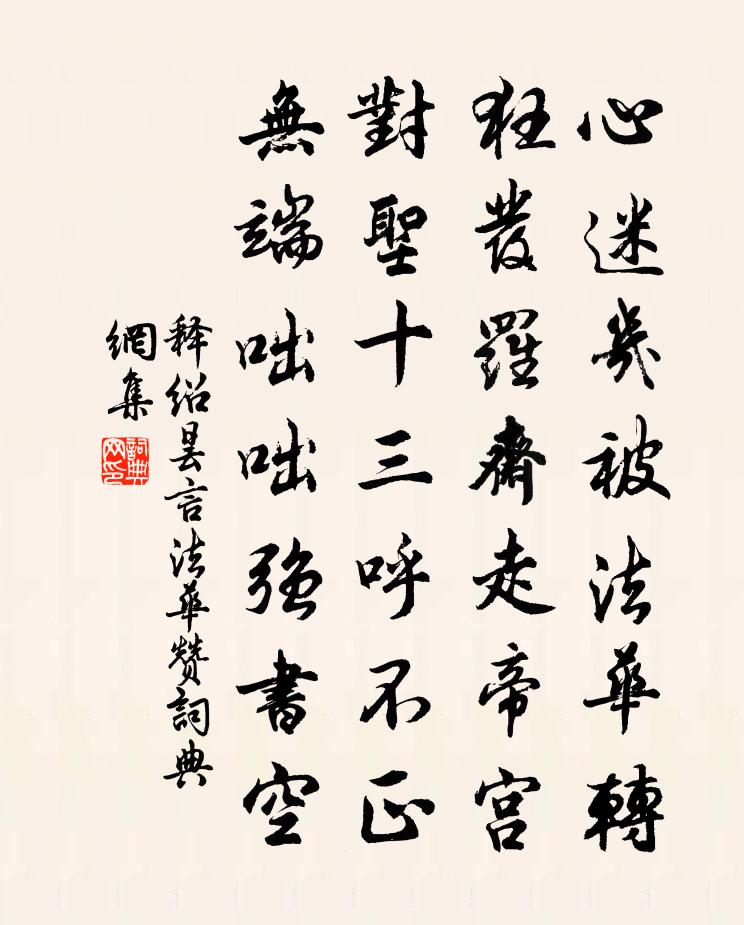 心迷幾被法華轉
狂發羅齋走帝宫
對聖十三呼不正
無端咄咄強書空
释绍昙言法華赞詞典
網集
詞典
网印